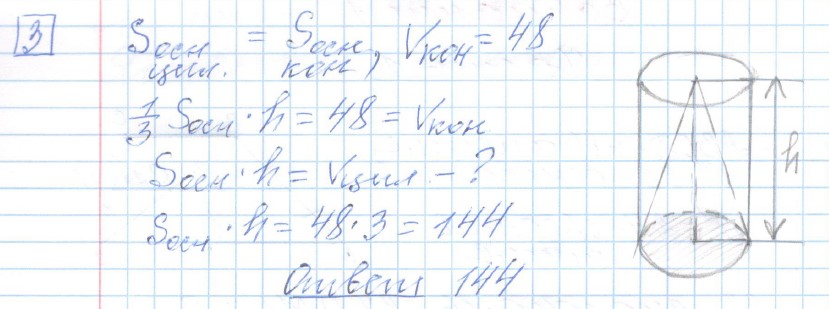 3 Sосн цил. = Sосн кон, Vкон = 48
1/3 Sосн · h = 48 = Vкон
Sосн · h = Vцил - ?
Sосн · h = 48 · 3 = 144
Ответ 144
h